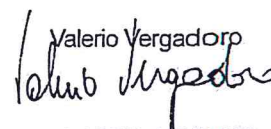 Valerio Vergadoro
Valerio Vergadoro